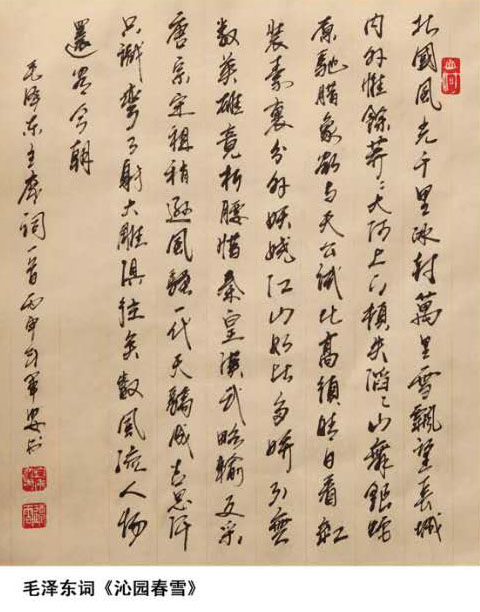 北國風光千里冰封萬里雪飄望長城
内外惟餘莽〻大河上下頓失滔〻山舞銀蛇
原馳腊象欲与天公試比高須晴日看紅
裝素裹分外妖嬈江山如此多娇引無
数英雄竟折腰惜秦皇漢武略輸文采
唐宗宋祖稍遜風騷一代天驕成吉思汗
只識彎弓射大雕俱往矣数風流人物
還看今朝
毛泽东主席词一首丙申
毛泽东词《沁园春雪》